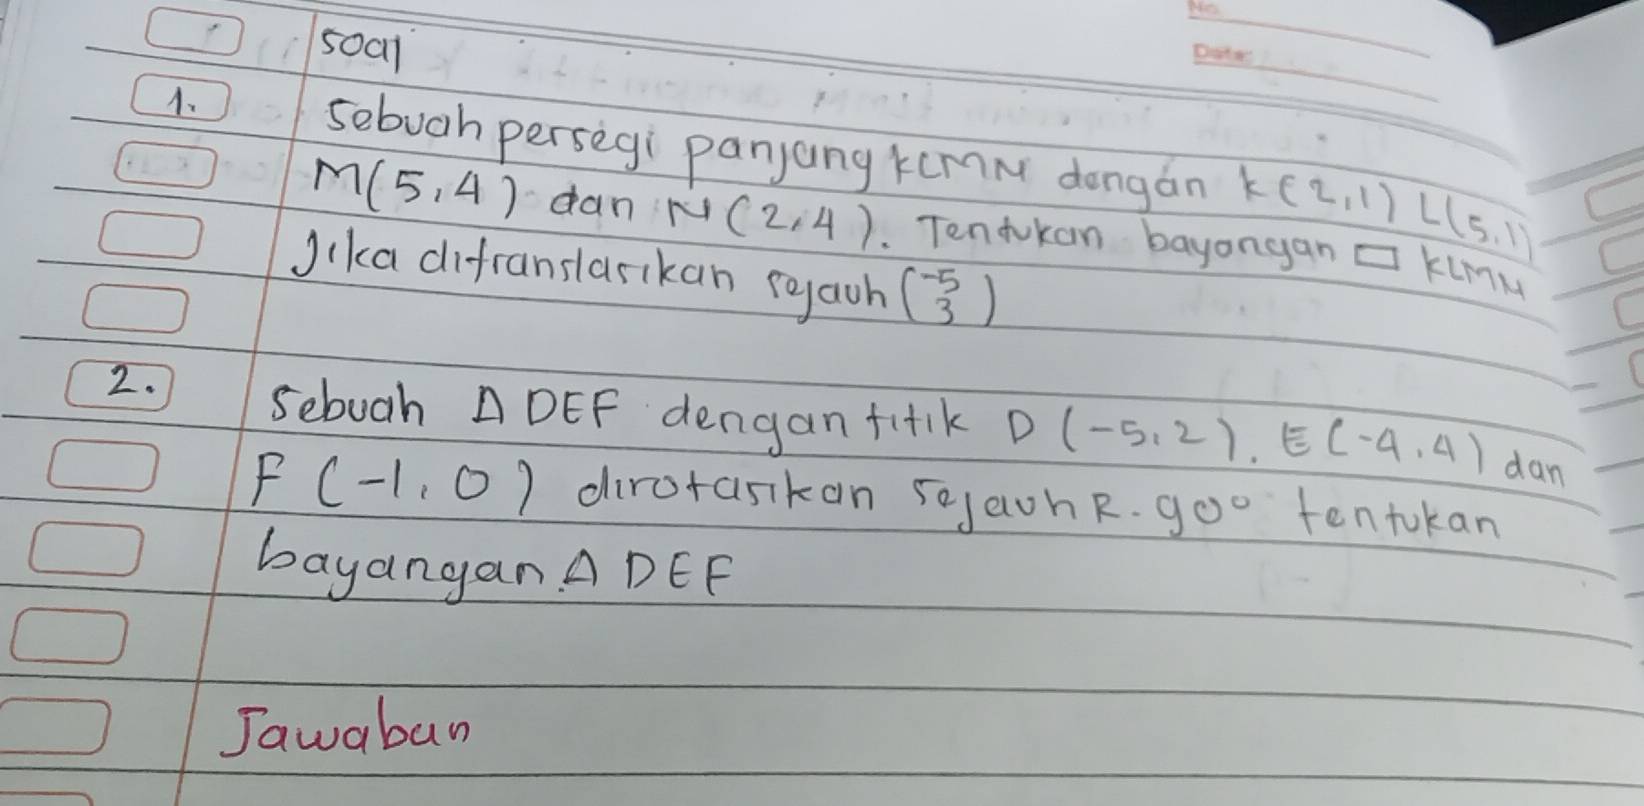 No
Date:
soal
1. Sebuah persegi panjang KLMN dengan K(2,1) L(5,1)
M(5,4) dan N(2,4). Tentukan bayangan ▭ KLMN
Jika ditranslasikan sejauh (-5 3)
2. Sebuah Δ DEF dengan titik D (-5,2). E(-4,4) dan
F (-1,0) dirotasikan sejauh R.90° tentukan
bayangan Δ DEF
Jawaban